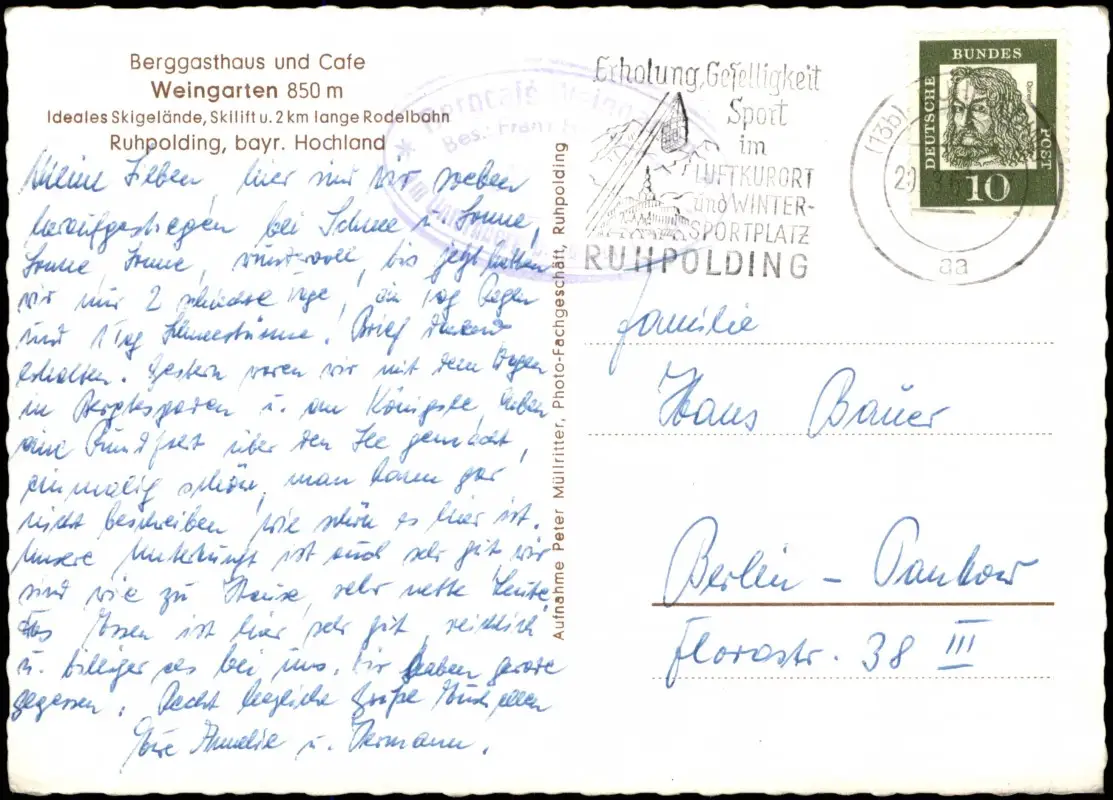 Berggasthaus und Cafe
Weingarten 850 m
Ideales Skigelände, Skilift u. 2 km lange Rodelbahn
Ruhpolding, bayr. Hochland
Meine Lieben, hier sind wir soeben
heraufgestiegen bei Schnee u. Sonne,
Sonne, Sonne, wundervoll, bis jetzt hatten
wir nur 2 schlechte Tage, ein Tag Regen
und 1 Tag Schneestürme. Brief dankend
erhalten. Gestern waren wir mit dem Wagen
in Berchtesgaden u. am Königsee, haben
eine Rundfahrt über den See gemacht,
einmalig schön, man kann gar
nicht beschreiben wie schön es hier ist.
Unsere Unterkunft ist auch sehr gut, wir
sind wie zu Hause, sehr nette Leute.
Das Essen ist hier sehr gut, reichlich
u. billiger als bei uns. Wir haben gerade
gegessen. Recht herzliche Grüße Euch allen
Eure Amalie u. Hermann.
Aufnahme Peter Müllritter, Photo-Fachgeschäft, Ruhpolding
Bes.: Franz
Erholung, Geselligkeit
Sport
im
LUFTKURORT
und WINTER-
SPORTPLATZ
RUHPOLDING
(13b)
aa
DEUTSCHE
BUNDES
POST
10
Familie
Hans Bauer
Berlin - Pankow
Florastr. 38 III